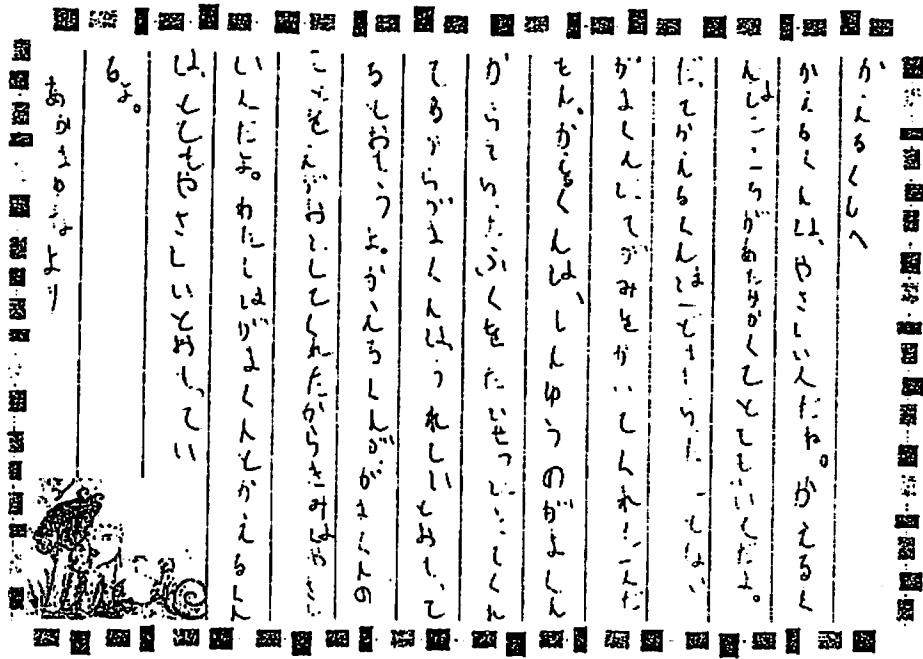 かえるくんへ
かえるくんは、やさしい人だね。かえるく
んはこころがあたたかくてとてもいいこだよ。
だってかえるくんは一ども もらった ことない
がまくんにてがみをかいてくれた んだ
もん。かえるくんは、しんゆうのがまくん
からもらったふくをたいせつにしてくれ
てるからがまくんはうれしいとおもって
るとおもうよ。かえるくんががまくんの
ことをえがおにしてくれたからきみはやさし
いんだよ。わたしはがまくんとかえるくん
は、とてもやさしいとおもってい
るよ。
より